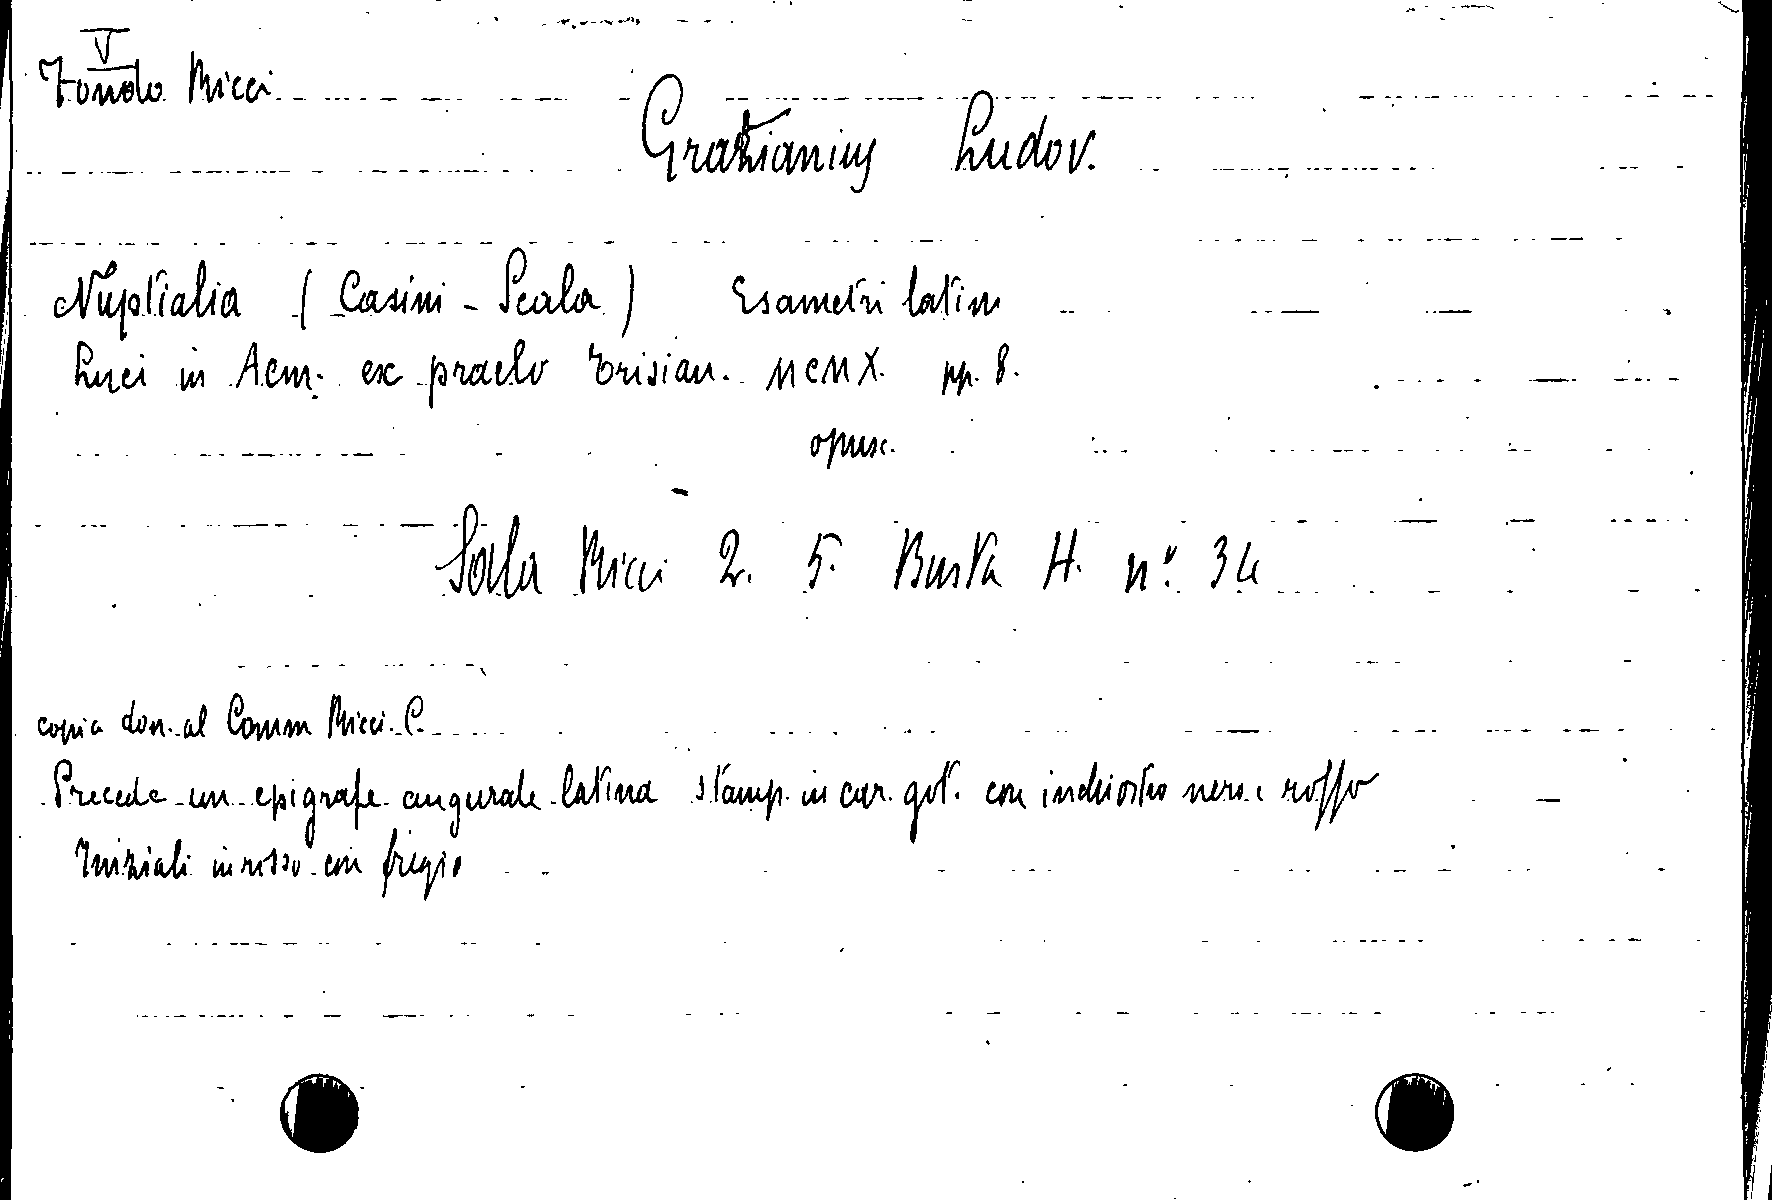 V
Fondo Ricci
Gratianius Ludov.
Nuptialia ( Casini - Scala ) Esametri latini
Luci in Aem. ex praelo Trisian. MCMX. pp. 8.
opusc.
Sala Ricci 2. 5. Busta H. nº. 34
copia don. al Comm Ricci. C.
Precede un epigrafe augurale latina stamp. in car. got. con inchiostro nero e rosso
Iniziali in rosso con fregio